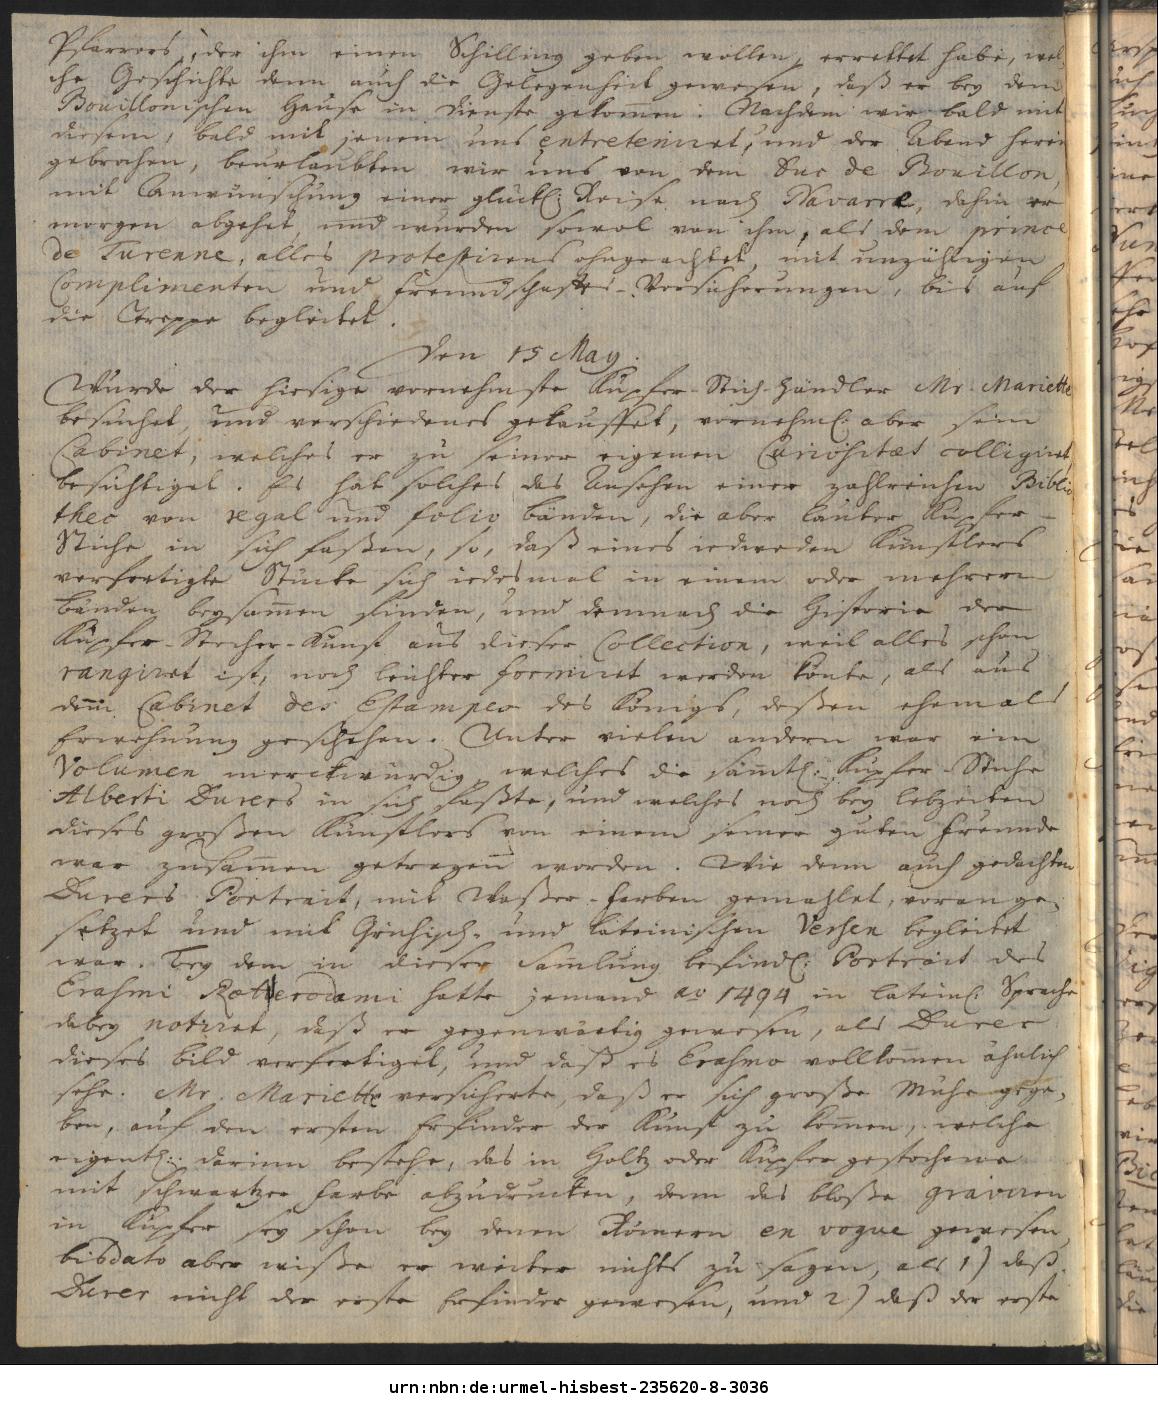 Pfarrers, der ihm einen Schilling geben wollen, errettet habe, wel-
che Geschichte denn auch die Gelegenheit gewesen, daß er bey dem
Bouillonischen Hause in Dienste gekom̄en. Nachdem wir bald mit
diesem, bald mit jenem uns entreteniret, und der Abend herein
gebrochen, beurlaubten wir uns von dem Duc de Bouillon,
mit Anwünschung einer glückl: Reise nach Navarre, dahin er
morgen abgehet, und wurden sowol von ihm, als dem prince
de Turenne, alles protestirens ohngeachtet, mit unzähligen
Complimenten und Freundschafts-Versicherungen, bis auf
die Treppe begleitet.
Den 15 May.
Wurde der hiesige vornehmste Kupfer-Stich-Händler Mr. Mariette
besuchet, und verschiedenes gekauffet, vornehml: aber sein
Cabinet, welches er zu seiner eigenen Curiosität colligiret,
besichtiget. Es hat solches das Ansehen einer zahlreichen Biblio
thec von regal und folio bänden, die aber lauter Kupfer-
Stiche in sich faßen, so, daß eines iedweden Künstlers
verfertigte Stücke sich iedesmal in einem oder mehrern
bänden beysam̄en finden, und demnach die Historie der
Kupfer-Stecher-Kunst aus dieser Collection, weil alles schon
rangiret ist, noch leichter formiret werden könte, als aus
dem Cabinet des Estampes des Königs, deßen ehemals
Erwehnung geschehen. Unter vielen andern war ein
Volumen merckwürdig, welches die sämtl: Kupfer-Stiche
Alberti Durers in sich faßte, und welches noch bey lebzeiten
dieses großen Künstlers von einem seiner guten Freunde
war zusam̄en getragen worden. Wie denn auch gedachten
Durers Portrait, mit Waßer-farben gemahlet, vorange-
setzet und mit Grichisch- und lateinischen Versen begleitet
war. Bey dem in dieser Samlung befindl: Portrait des
Erasmi Rotterodami hatte jemand ao 1494 in lateinl: Sprache
dabey notiret, daß er gegenwärtig gewesen, als Durer
dieses bild verfertiget, und daß es Erasmo vollkom̄en ähnlich
sehe. Mr. Mariette versicherte, daß er sich große Mühe gege-
ben, auf den ersten Erfinder der Kunst zu kom̄en, welche
eigentl: darinn bestehe, das in Holtz oder Kupfer gestochene
mit schwartzer Farbe abzudrucken, denn das bloße graviren
in Kupfer sey schon bey denen Römern en vogue gewesen,
bisdato aber wiße er weiter nichts zu sagen, als 1) daß
Durer nicht der erste Erfinder gewesen, und 2) daß der erste
urn:nbn:de:urmel-hisbest-235620-8-3036